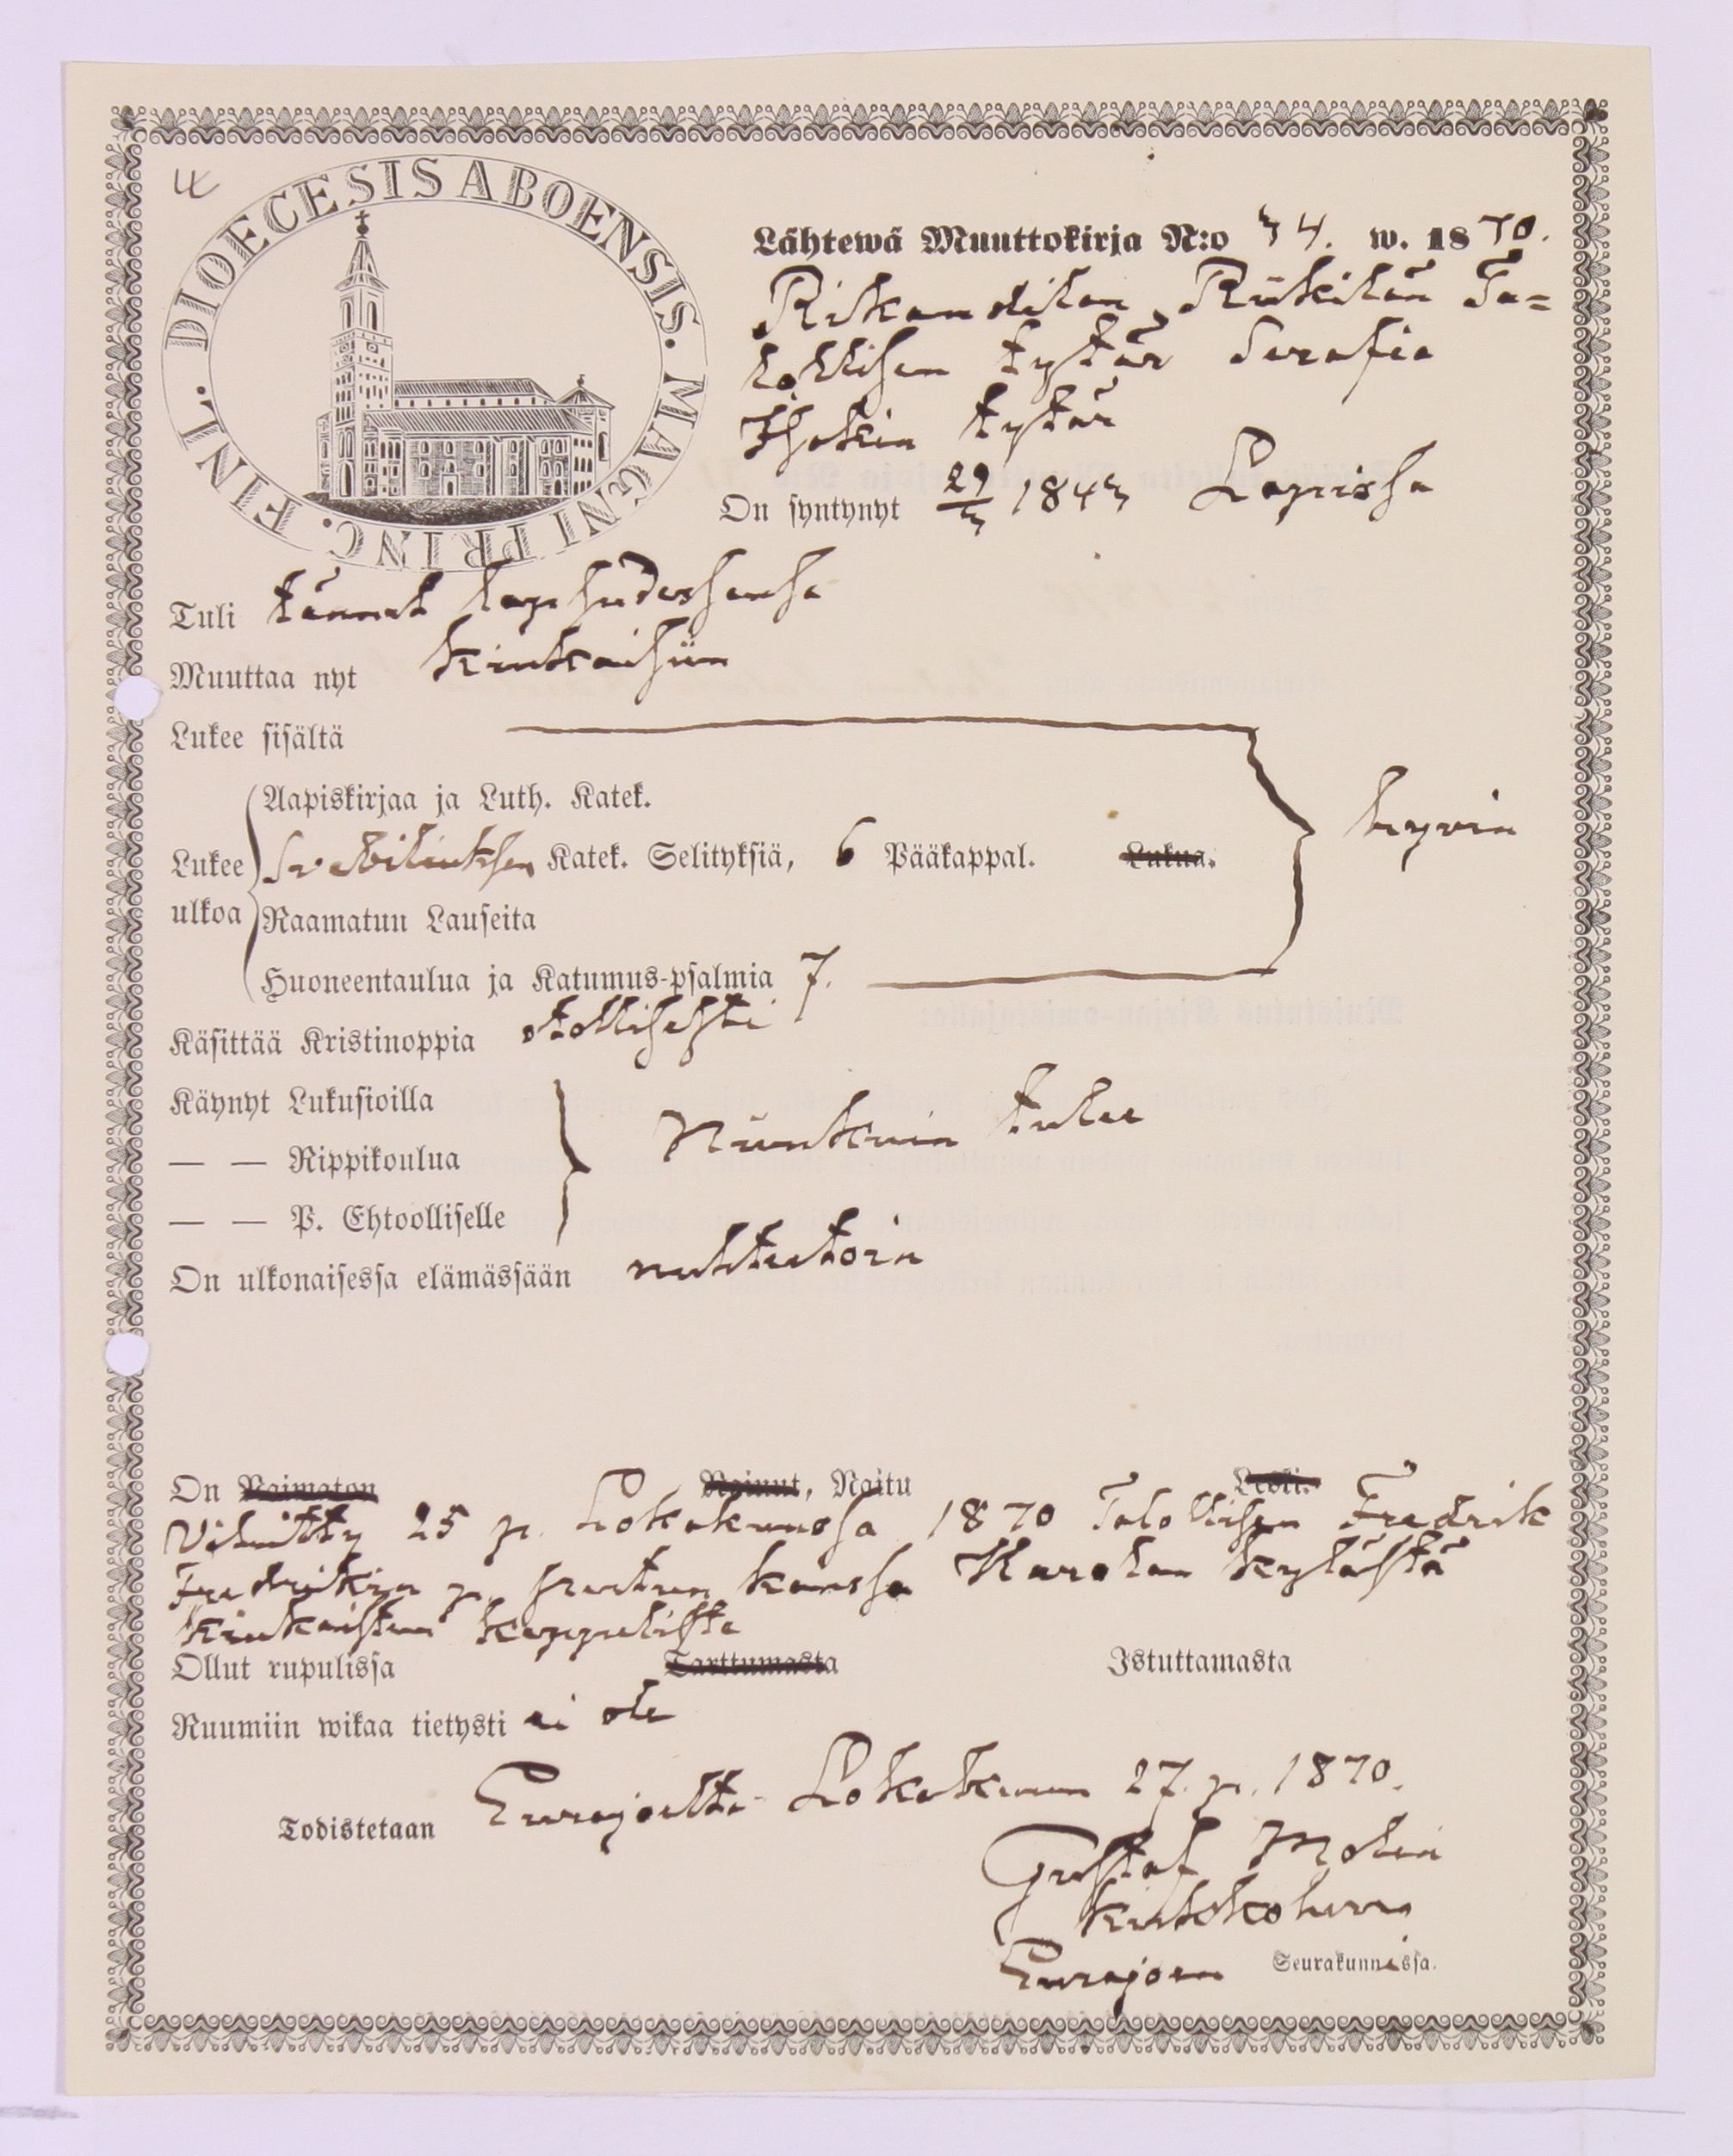 4
DIOECESIS ABOENSIS. MAGNI PRINC. FINL.
Lähtewä Muuttokirja N:o 34. w. 1870.
Rikandilan, Riikilän Ta=
lollisen tytär Serafia
Isakin tytär
On syntynyt 29/3 1843 Lapissa
Tuli tännet lapsudessansa
Muuttaa nyt Kiukaisiin
Lukee sisältä
Aapiskirjaa ja Luth. Katek.
hyvin
Lukee Svebiliuksen Katek. Selityksiä, 6 Pääkappal. Lukua.
ulkoa Raamatun Lauseita
Huoneentaulua ja Katumus-psalmia 7.
Käsittää Kristinoppia
Käynyt Lukusioilla
— — Rippikoulua Niinkuin tulee
— — P. Ehtoolliselle
On ulkonaisessa elämässään nuhteetoin
On Naimaton Nainut, Naitu Leski.
Vihitty 25 p. Lokakuussa 1870 Talollisen Fredrik
Fredrikin p. kanssa Harolan kylästä
Kiukaisten kappelista
Ollut rupulissa Tarttumasta Istuttamasta
Ruumiin wikaa tietysti ei ole
Todistetaan Eurajoelta Lokakuun 27. p. 1870.
Gustaf Molin
Kirkkoherra
Eurajoen Seurakunnissa.